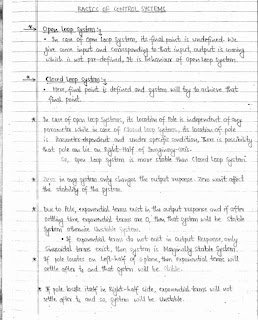 BASICS OF CONTROL SYSTEMS
Open loop System:-
• In case of Open loop System, its final point is undefined. We
give some input and corresponding to that input, output is coming
which is not pre-defined, it is behaviour of Open loop System.
Closed loop System:-
• Here, final point is defined and system will try to achieve that
final point.
* In case of Open loop Systems, its location of Pole is independent of any
parameter while in case of Closed loop Systems, its location of pole
is Parameter-dependent and under specific condition, There is possibility
that pole can lie on Right-Half of Imaginary-axis.
So, Open loop System is more stable than Closed loop System.
* Zeros in any system only changes the output response. Zero won't affect
the stability of the system.
* Due to Pole, exponential terms exist in the output response and if after
settling time exponential terms are 0, Then that system will be Stable
System otherwise Unstable System.
• If exponential terms do not exist in Output Response, only
Sinusoidal terms exist, then system is Marginally Stable System.
* If pole locates on Left-half of s-plane, then exponential terms will
settle after ts and that system will be Stable.
* If pole locate itself in Right-half side, exponential terms will not
settle after ts and so, system will be Unstable.